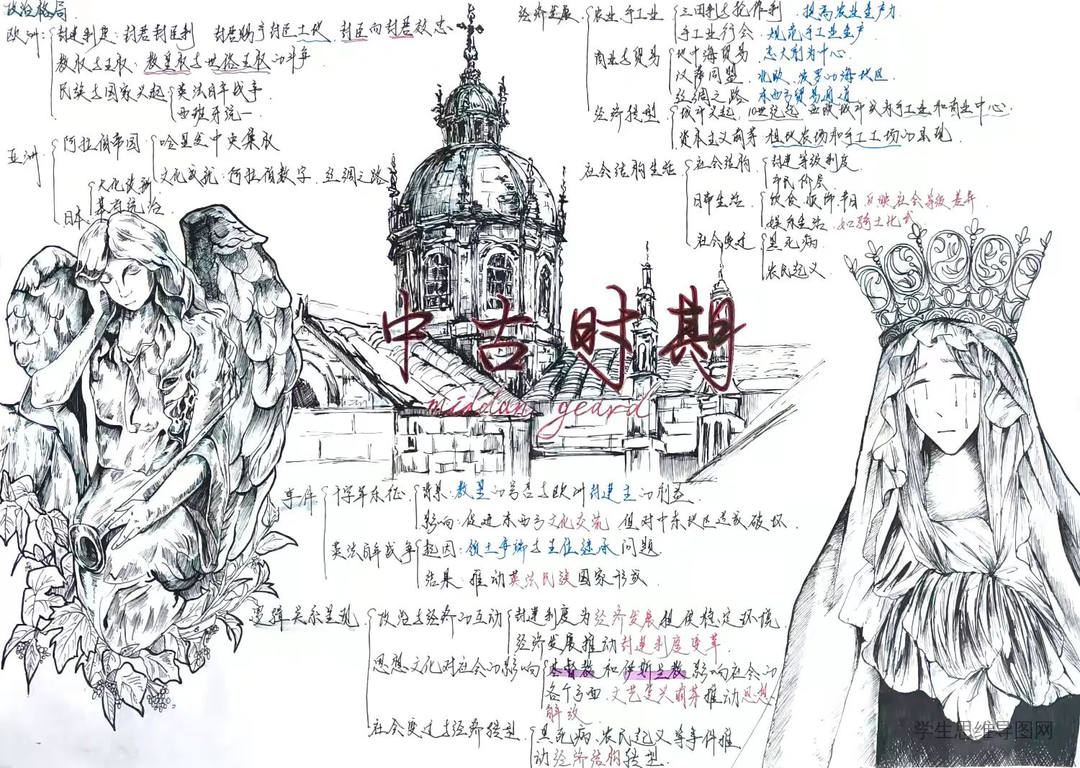 政治格局
欧洲
封建制度:封君封臣制 封君赐予封臣土地,封臣向封君效忠
教权与王权:教皇权与世俗王权的斗争
民族与国家兴起
英法百年战争
西班牙统一
亚洲
阿拉伯帝国
哈里发中央集权
文化成就:阿拉伯数字、丝绸之路
日本
大化改新
幕府统治
经济发展
农业手工业
三田制与轮作制 提高农业生产力
手工业行会 规范手工业生产
商业与贸易
地中海贸易 意大利为中心
汉萨同盟 北欧、波罗的海地区
丝绸之路 东西方贸易通道
经济转型
城市兴起 10世纪起 西欧城市成为手工业和商业中心
资本主义萌芽 租地农场和手工工场的出现
社会结构生活
社会结构
封建等级制度
市民阶层
日常生活
饮食 服饰 节日 反映社会等级差异
娱乐生活 如骑士比武
社会变迁
黑死病
农民起义
中古时期
middle geard
事件
十字军东征
背景:教皇的号召与欧洲封建主的利益
影响:促进东西方文化交流 但对中东地区造成破坏
英法百年战争
起因:领土争端与王位继承问题
结果:推动英法民族国家形成
逻辑关系呈现
政治与经济的互动
封建制度为经济发展提供稳定环境
经济发展推动封建制度变革
思想文化对社会的影响
基督教和伊斯兰教影响社会的
各个方面 文艺复兴萌芽推动思想
解放
社会变迁与经济转型
黑死病、农民起义等事件推
动经济结构转型
学生思维导图网